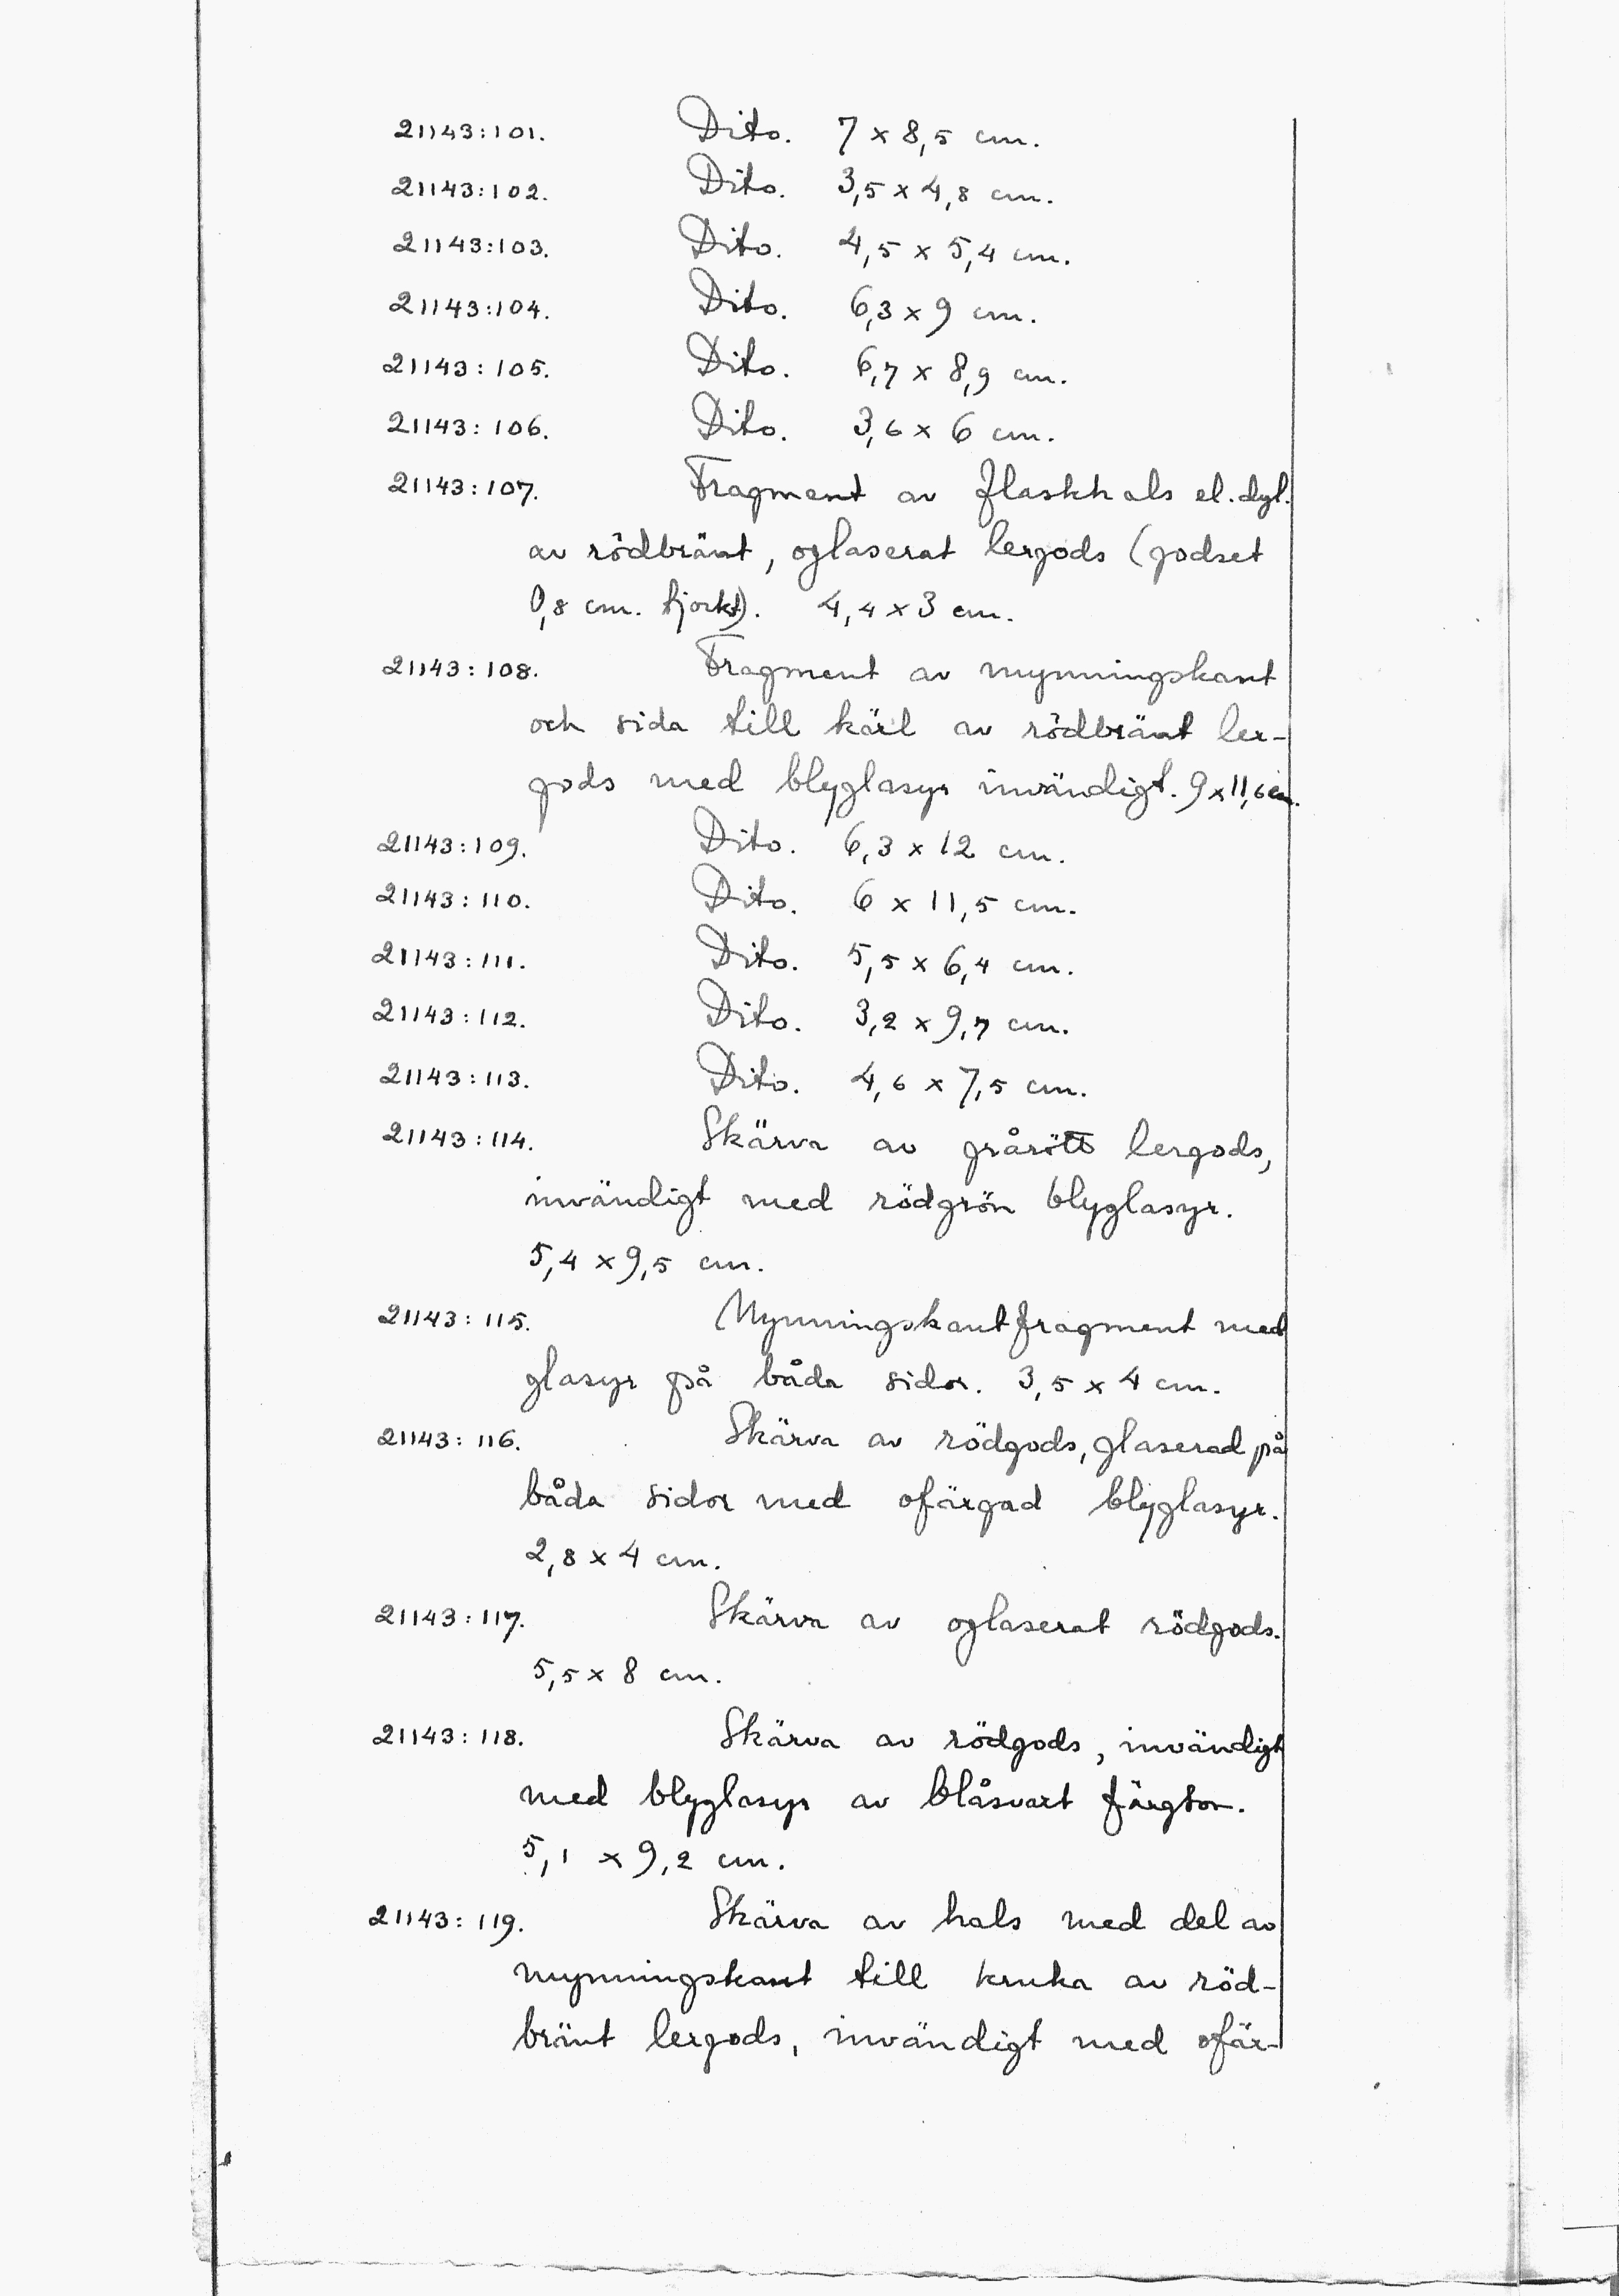 21143:101. Dito. 7 x 8,5 cm.
21143:102. Dito. 3,5 x 4,8 cm.
21143:103. Dito. 4,5 x 5,4 cm.
21143:104. Dito. 6,3 x 9 cm.
21143:105. Dito. 6,7 x 8,9 cm.
21143:106. Dito. 3,6 x 6 cm.
21143:107. Fragment av flaskhals el. dyl.
av rödbränt, oglaserat lergods (godset
0,8 cm. tjockt). 4,4 x 3 cm.
21143:108. Fragment av mynningskant
och sida till kärl av rödbränt ler-
gods med blyglasyr invändigt. 9 x 11,6 cm.
21143:109. Dito. 6,3 x 12 cm.
21143:110. Dito. 6 x 11,5 cm.
21143:111. Dito. 5,5 x 6,4 cm.
21143:112. Dito. 3,2 x 9,7 cm.
21143:113. Dito. 4,6 x 7,5 cm.
21143:114. Skärva av grårött lergods,
invändigt med rödgrön blyglasyr.
5,4 x 9,5 cm.
21143:115. Mynningskantfragment med
glasyr på båda sidor. 3,5 x 4 cm.
21143:116. Skärva av rödgods, glaserad på
båda sidor med ofärgad blyglasyr.
2,8 x 4 cm.
21143:117. Skärva av oglaserat rödgods.
5,5 x 8 cm.
21143:118. Skärva av rödgods, invändigt
med blyglasyr av blåsvart färgton.
5,1 x 9,2 cm.
21143:119. Skärva av hals med del av
mynningskant till kruka av röd-
bränt lergods, invändigt med ofär-